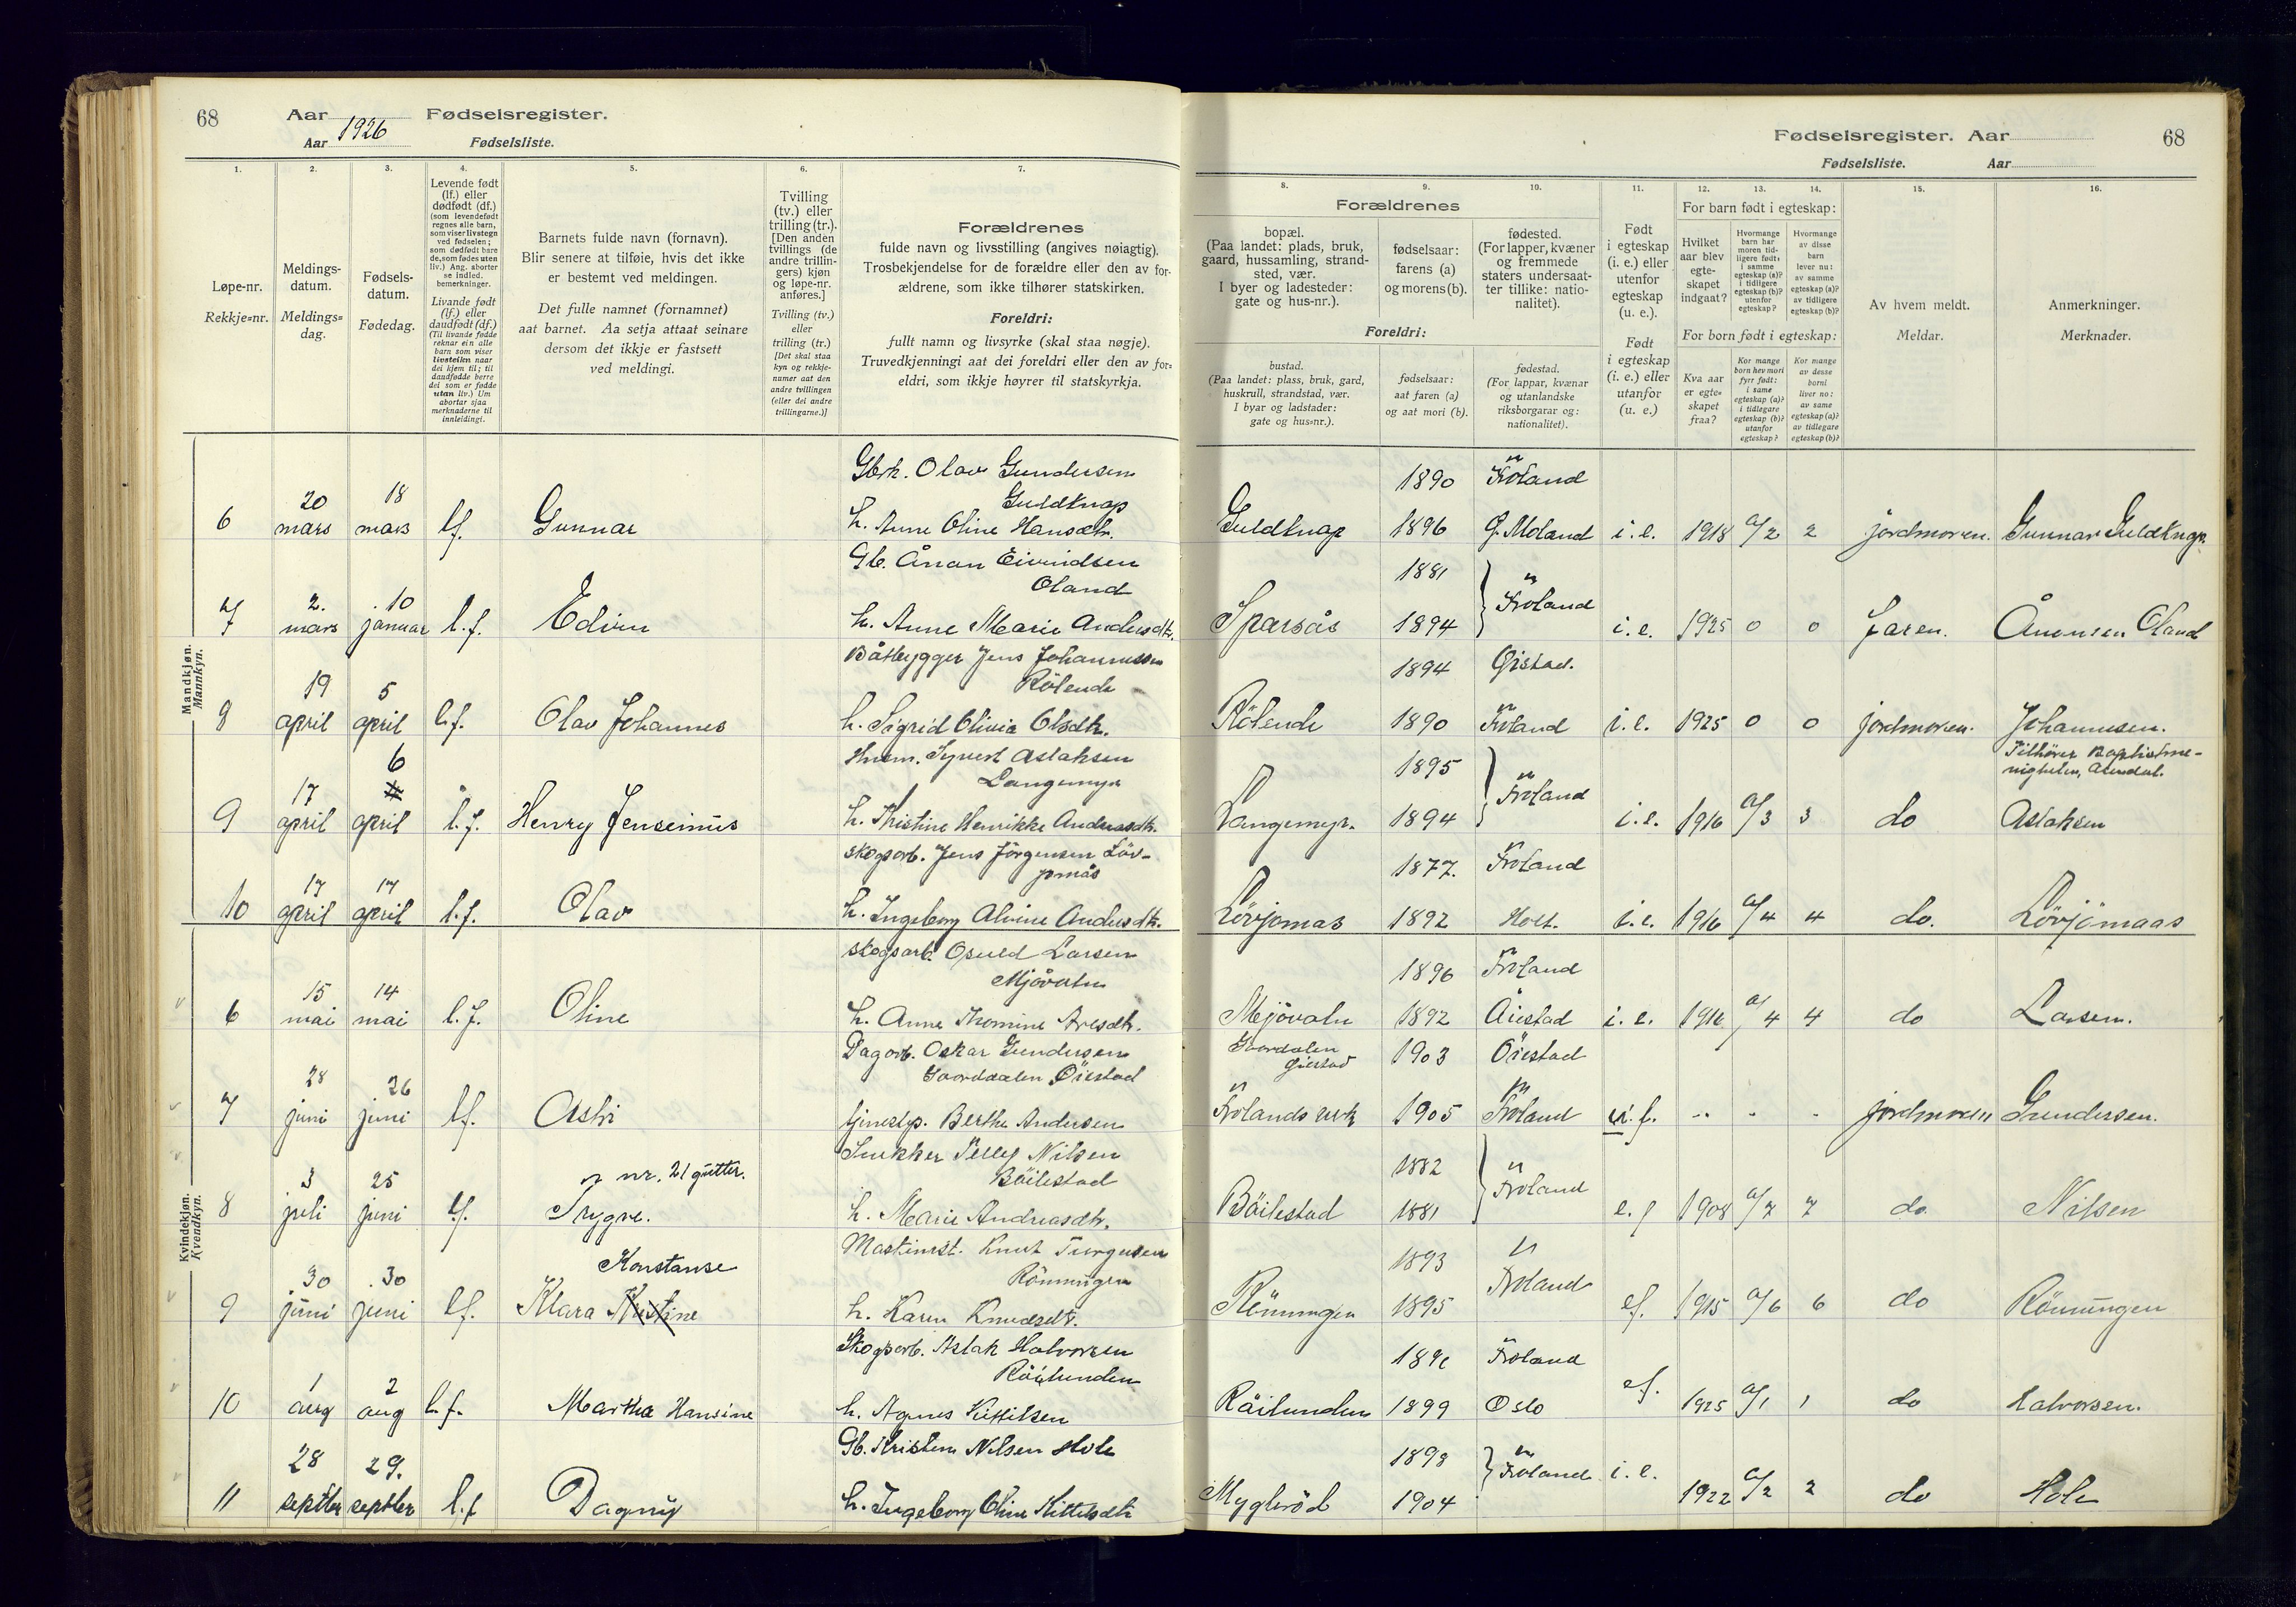 68 Aar 1926 Fødselsregister.
Aar Fødselsliste.
Fødselsregister. Aar 68
Fødselsliste. Aar
1. 2. 3. 4. 5. 6. 7.
8. 9. 10. 11. 12. 13. 14. 15. 16.
Løpe-nr.
Rekkje=nr.
Meldings-
datum.
Meldings=
dag.
Fødsels-
datum.
Fødedag.
Levende født
(lf.) eller
dødfødt (df.)
(som levendefødt
regnes alle barn,
som viser livstegn
ved fødselen;
som dødfødt bare
de, som fødes uten
liv.) Ang. aborter
se indled.
bemerkninger.
Livande født
(lf.) eller
daudfødt (df.)
(Til livande fødde
reknar ein alle
barn som viser
livsteikn naar
dei kjem til; til
daudfødde berre
dei som er fødde
utan liv.) Um
abortar sjaa
merknaderne til
innleidingi.
Barnets fulde navn (fornavn).
Blir senere at tilføie, hvis det ikke
er bestemt ved meldingen.
Det fulle namnet (fornamnet)
aat barnet. Aa setja attaat seinare
dersom det ikkje er fastsett
ved meldingi.
Tvilling
(tv.) eller
trilling (tr.).
[Den anden
tvillings (de
andre trillin-
gers) kjøn
og løpe-nr.
anføres.]
Tvilling (tv.)
eller
trilling (tr.)
[Det skal staa
kyn og rekkje-
numer aat den
andre tvillingen
(eller dei andre
trillingarne.)]
Forældrenes
fulde navn og livsstilling (angives nøiagtig).
Trosbekjendelse for de forældre eller den av for-
ældrene, som ikke tilhører statskirken.
Foreldri:
fullt namn og livsyrke (skal staa nøgje).
Truvedkjenningi aat dei foreldri eller den av for=
eldri, som ikkje høyrer til statskyrkja.
Forældrenes
bopæl.
(Paa landet: plads, bruk,
gaard, hussamling, strand-
sted, vær.
I byer og ladesteder:
gate og hus-nr.).
fødselsaar:
farens (a)
og morens (b).
fødested.
(For lapper, kvæner
og fremmede
staters undersaat-
ter tillike: natio-
nalitet).
Foreldri:
bustad.
(Paa landet: plass, bruk, gard,
huskrull, strandstad, vær.
I byar og ladstader:
gate og hus=nr.).
fødselsaar:
aat faren (a)
og aat mori (b).
fødestad.
(For lappar, kvænar
og utanlandske
riksborgarar og:
nationalitet).
Født
i egteskap
(i. e.) eller
utenfor
egteskap
(u. e.).
Født
i egteskap
(i. e.) eller
utanfor
(u. e.)
For barn født i egteskap:
Hvilket
aar blev
egte-
skapet
indgaat?
Hvormange
barn har
moren tid-
ligere født:
i samme
egteskap (a)?
i tidligere
egteskap (b)?
utenfor
egteskap?
Hvormange
av disse
barn
lever nu:
av samme
egteskap (a)?
av tidligere
egteskap (b)?
For born født i egteskap:
Kva aar
er egte=
skapet
fraa?
Kor mange
born hev mori
fyrr født:
i same
egteskap (a)?
i tidlegare
egteskap (b)?
utanfor
egteskap?
Kor mange
av desse
borni
liver no:
av same
egteskap (a)?
av tidlegare
egteskap (b)?
Av hvem meldt.
Meldar.
Anmerkninger.
Merknader.
Mandkjøn.
Mannkyn.
Gbrk. Olav Gundersen 1890 Froland
20 18 Guldknap
6 mars mars lf. Gunnar h. Anne Oline Hansdtr. Guldknap 1896 Ø. Moland i. e. 1918 a/2 2 jordmoren. Gunnar Guldknap.
Gb. Ånon Eivindsen 1881
2. 10 Oland Froland
7 mars januar l.f. Edvin h. Anne Marie Andersdtr. Sparsås 1894 i. e. 1925 0 0 faren. Ånonsen Oland
Båtbygger Jens Johannessen 1894 Øistad.
19 5 Rölende
8 april april l.f. Olav Johannes h. Sigrid Olivia Olsdtr. Rölende 1890 Froland i. e. 1925 0 0 jordmoren. Johannesen.
6 Husm. Syvert Aslaksen 1895 Tilhører Baptistme-
17 4 Langemyr Froland nigheten, Arendal.
9 april april l.f. Henry Jenseinius h. Kristine Henrikke Andreasdtr. Langemyr. 1894 i. e. 1916 a/3 3 do Aslaksen
skogsarb. Jens Jörgensen Löv- 1877. Froland
17 17 jomås
10 april april l.f. Olav h. Ingeborg Alvine Andersdtr. Lövjomas 1892 Holt. i. e. 1916 a/4 4 do. Lövjömaas
Kvindekjøn.
Kvendkyn.
skogsarb. Osuld Larsen 1896 Froland
15 14 Mjövatn
6 mai mai l.f. Oline h. Anne Thomine Aresdtr. Mjövatn 1892 Öiestad i. e. 1916 a/4 4 do Larsen.
Dagarb. Oskar Gundersen 1903 Öiestad
28 26 Øiestad
7 juni juni lf. Astri tjenestp. Berthe Andersen Frolands verk 1905 Froland jordmoren Gundersen.
nr. 21 gutter. Snekker Nilsen 1882
3 25 Böilestad Froland
8 juli juni lf. Trygve. h. Marie Andreasdtr. Böilestad 1881 1908 a/7 7 do Nilsen
Konstanse Knut Turgusen 1893 Froland
30 30 Rönningen
9 juni juni lf. Klara Kristine h. Karen Knudsdtr. Rönningen 1895 ef. 1915 a/6 6 do Rönningen
Skogsarb. Aslak Halvorsen Froland
1 2 Röilunden
10 aug aug l.f. Martha Hansine h. Agnes Kittilsen Röilunden 1899 Oslo ef. 1925 a/1 1 do Halvorsen.
Gb. Kristen Nilsen Hole 1898
28 29. Froland i. e.
11 septbr septber l.f Dagny h. Ingeborg Oline Kittelsdtr Myglerød 1904 1922 a/2 2 do Hole